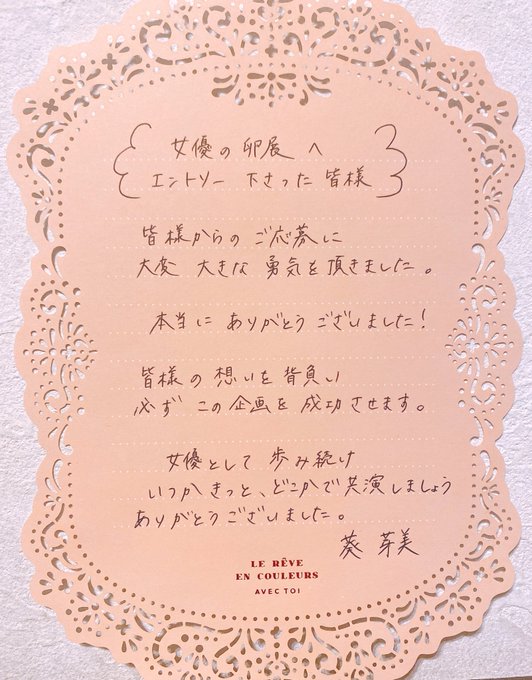 女優の卵展へ
エントリー下さった皆様
皆様からのご応募に
大変大きな勇気を頂きました。
本当にありがとうございました!
皆様の想いを背負い
必ずこの企画を成功させます。
女優として歩み続け
いつかきっと、どこかで共演しましょう
ありがとうございました。
葵芽美
LE RÊVE
EN COULEURS
AVEC TOI